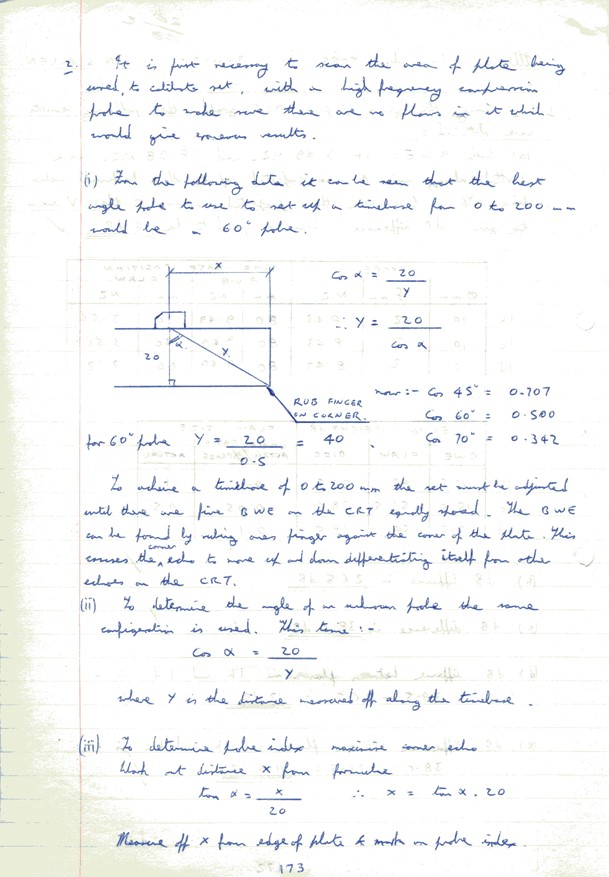 2. It is first necessary to scan the area of plate being
used, to calibrate set, with a high frequency compression
probe to make sure there are no flaws in it which
would give erroneous results.
(i) From the following data it can be seen that the best
angle probe to use to set up a timebase from 0 to 200 mm
would be a 60° probe.
x
Cos α = 20 / Y
∴ Y = 20 / cos α
20
α
Y
RUB FINGER
ON CORNER.
now :- Cos 45° = 0.707
Cos 60° = 0.500
Cos 70° = 0.342
for 60° probe Y = 20 / 0.5 = 40
To achieve a timebase of 0 to 200 mm the set must be adjusted
until there are five BWE on the CRT equally spaced. The BWE
can be found by rubing ones finger against the corner of the plate. This
causes the corner echo to move up and down differentiating itself from other
echoes on the CRT.
(ii) To determine the angle of an unknown probe the same
configeration is used. This time :-
Cos α = 20 / Y
where Y is the distance measured off along the timebase.
(iii) To determine probe index maximise corner echo
Work out distance x from formulae
tan α = x / 20 ∴ x = tan α . 20
Measure off x from edge of plate & mark on probe index.
173